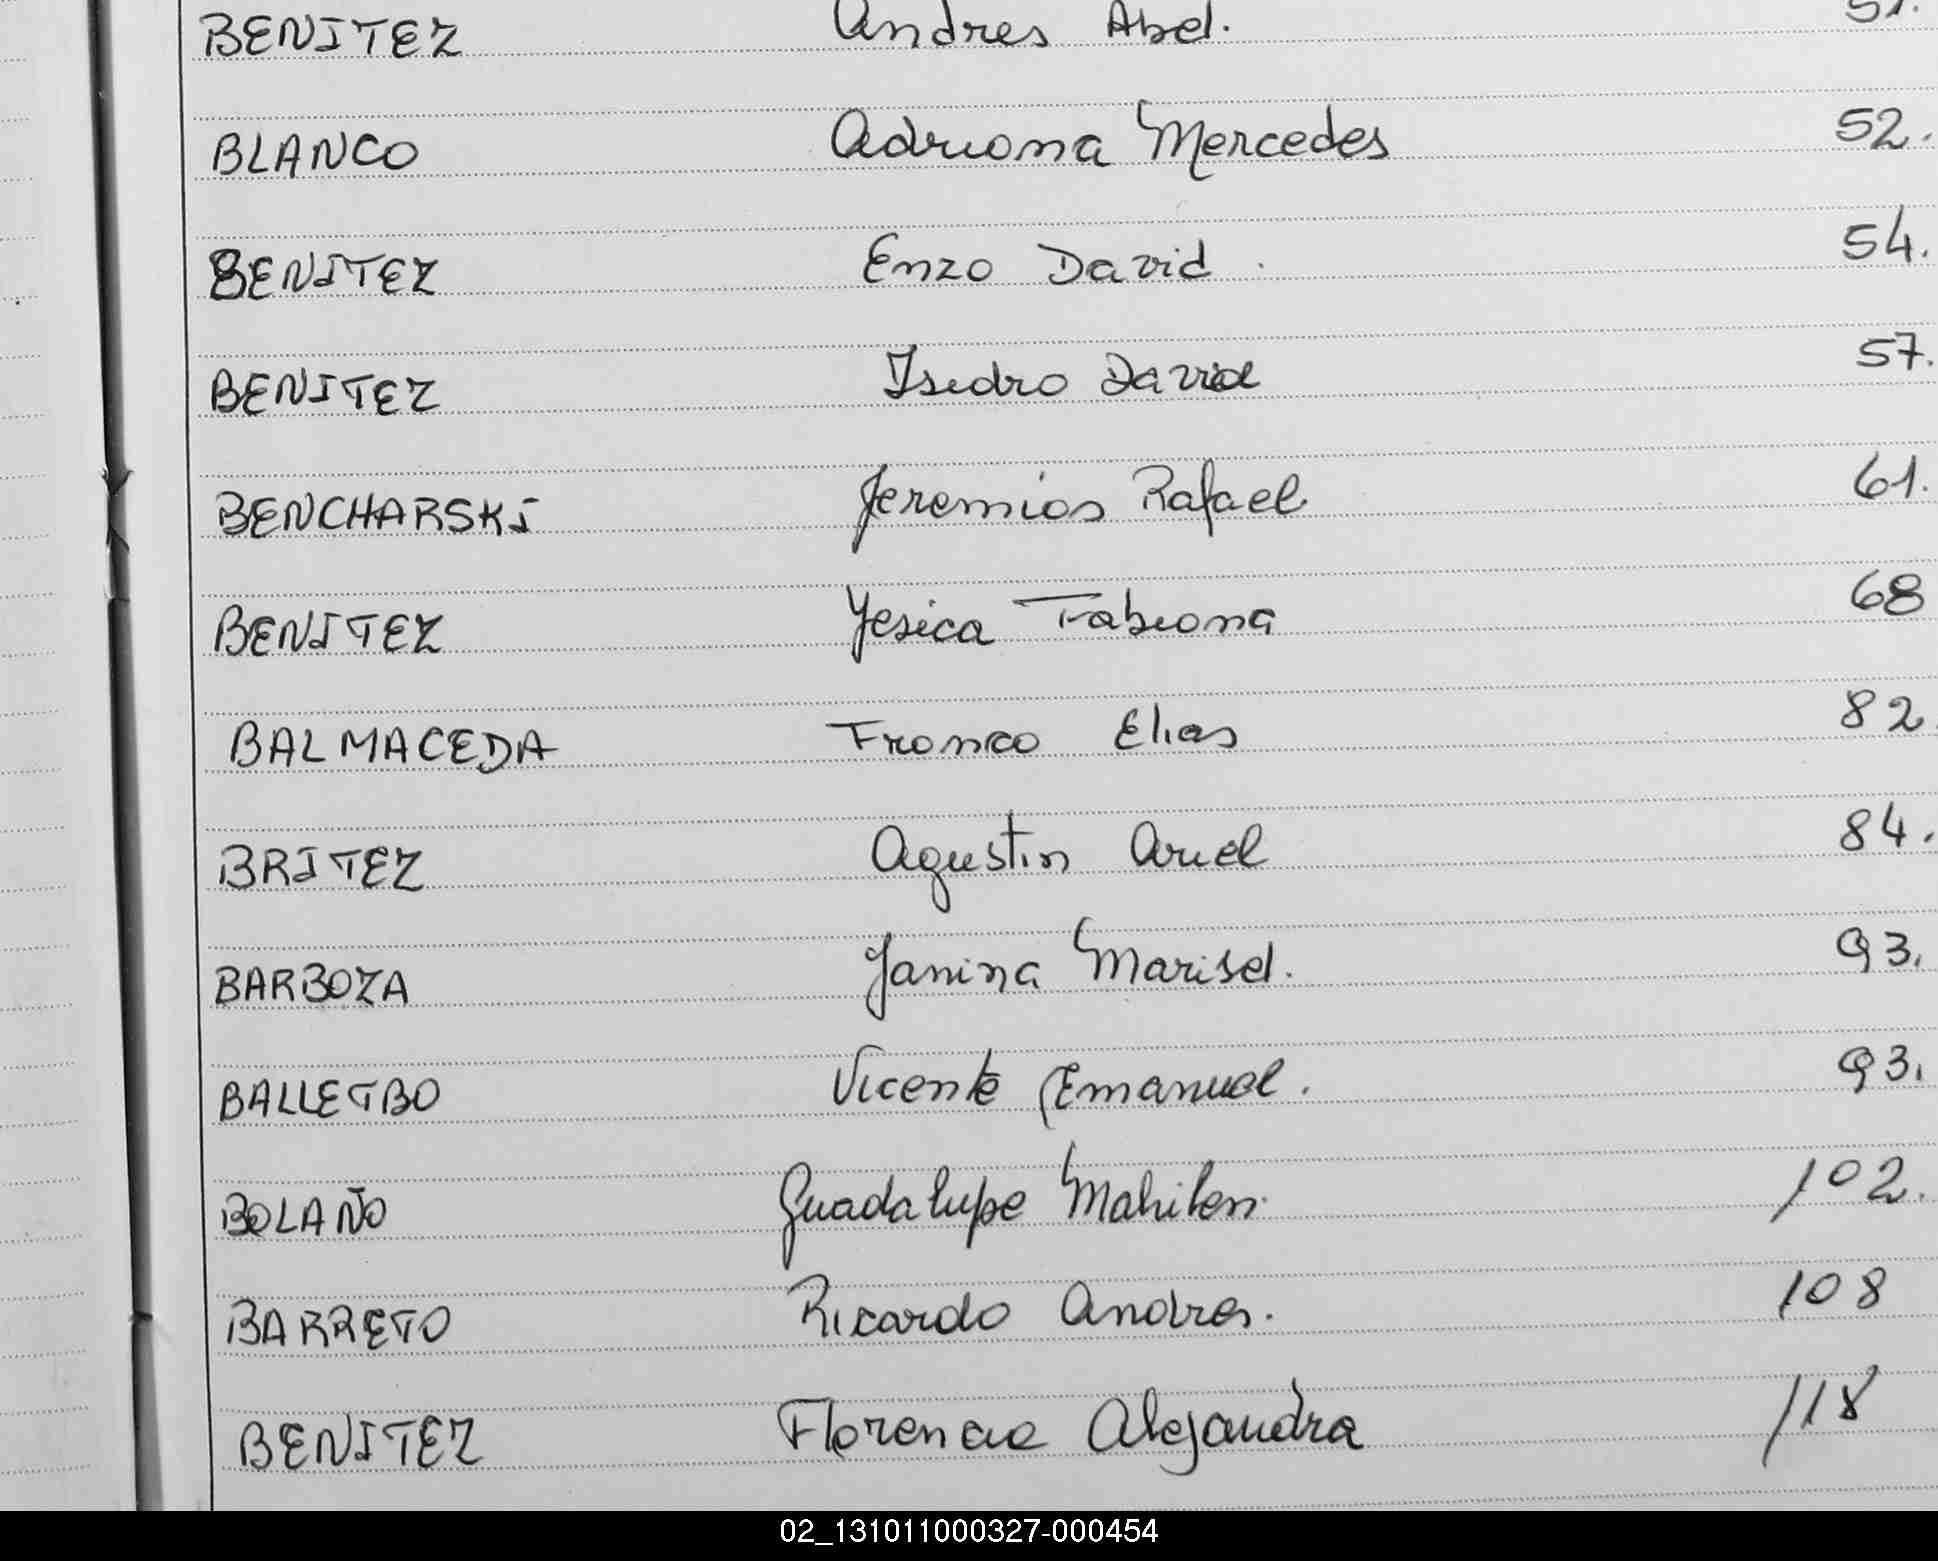 BENITEZ Andres Abel. 51.
BLANCO Adriana Mercedes 52.
BENITEZ Enzo David. 54.
BENITEZ Isidro David 57.
BENCHARSKI Jeremias Rafael 61.
BENITEZ Yesica Fabiana 68
BALMACEDA Franco Elias 82.
BRITEZ Agustin Ariel 84.
BARBOZA Janina Marisel. 93.
BALLETBO Vicente Emanuel. 93.
BOLAÑO Guadalupe Mahilen. 102.
BARRETO Ricardo Andres. 108
BENITEZ Florencia Alejandra 118
02_131011000327-000454